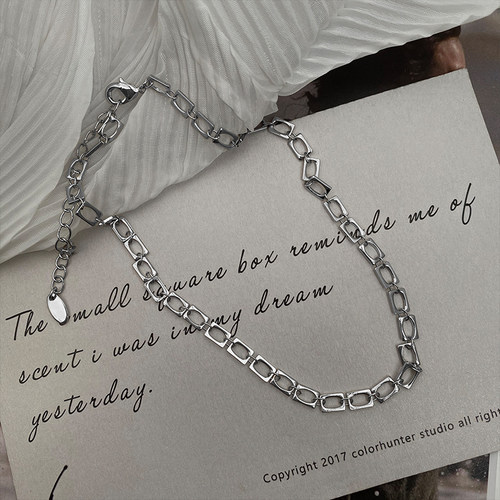 The small square box reminds me of
scent i was in my dream
yesterday.
Copyright 2017 colorhunter studio all right